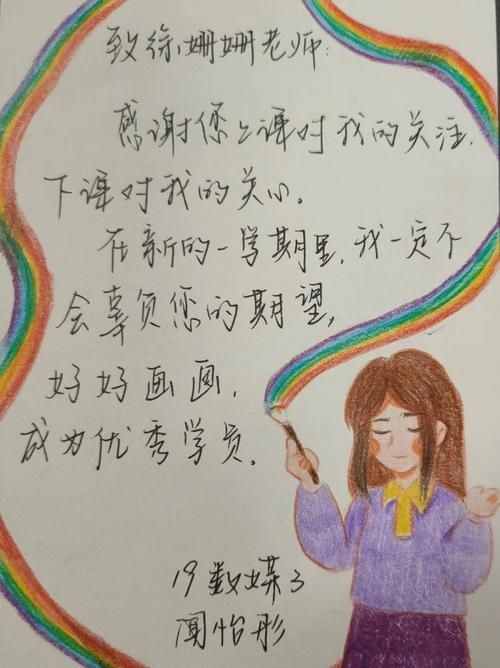 致徐姗姗老师:
感谢您上课对我的关注,
下课对我的关心。
在新的一学期里,我一定不
会辜负您的期望,
好好画画,
成为优秀学员。
19数媒3
闻怡彤